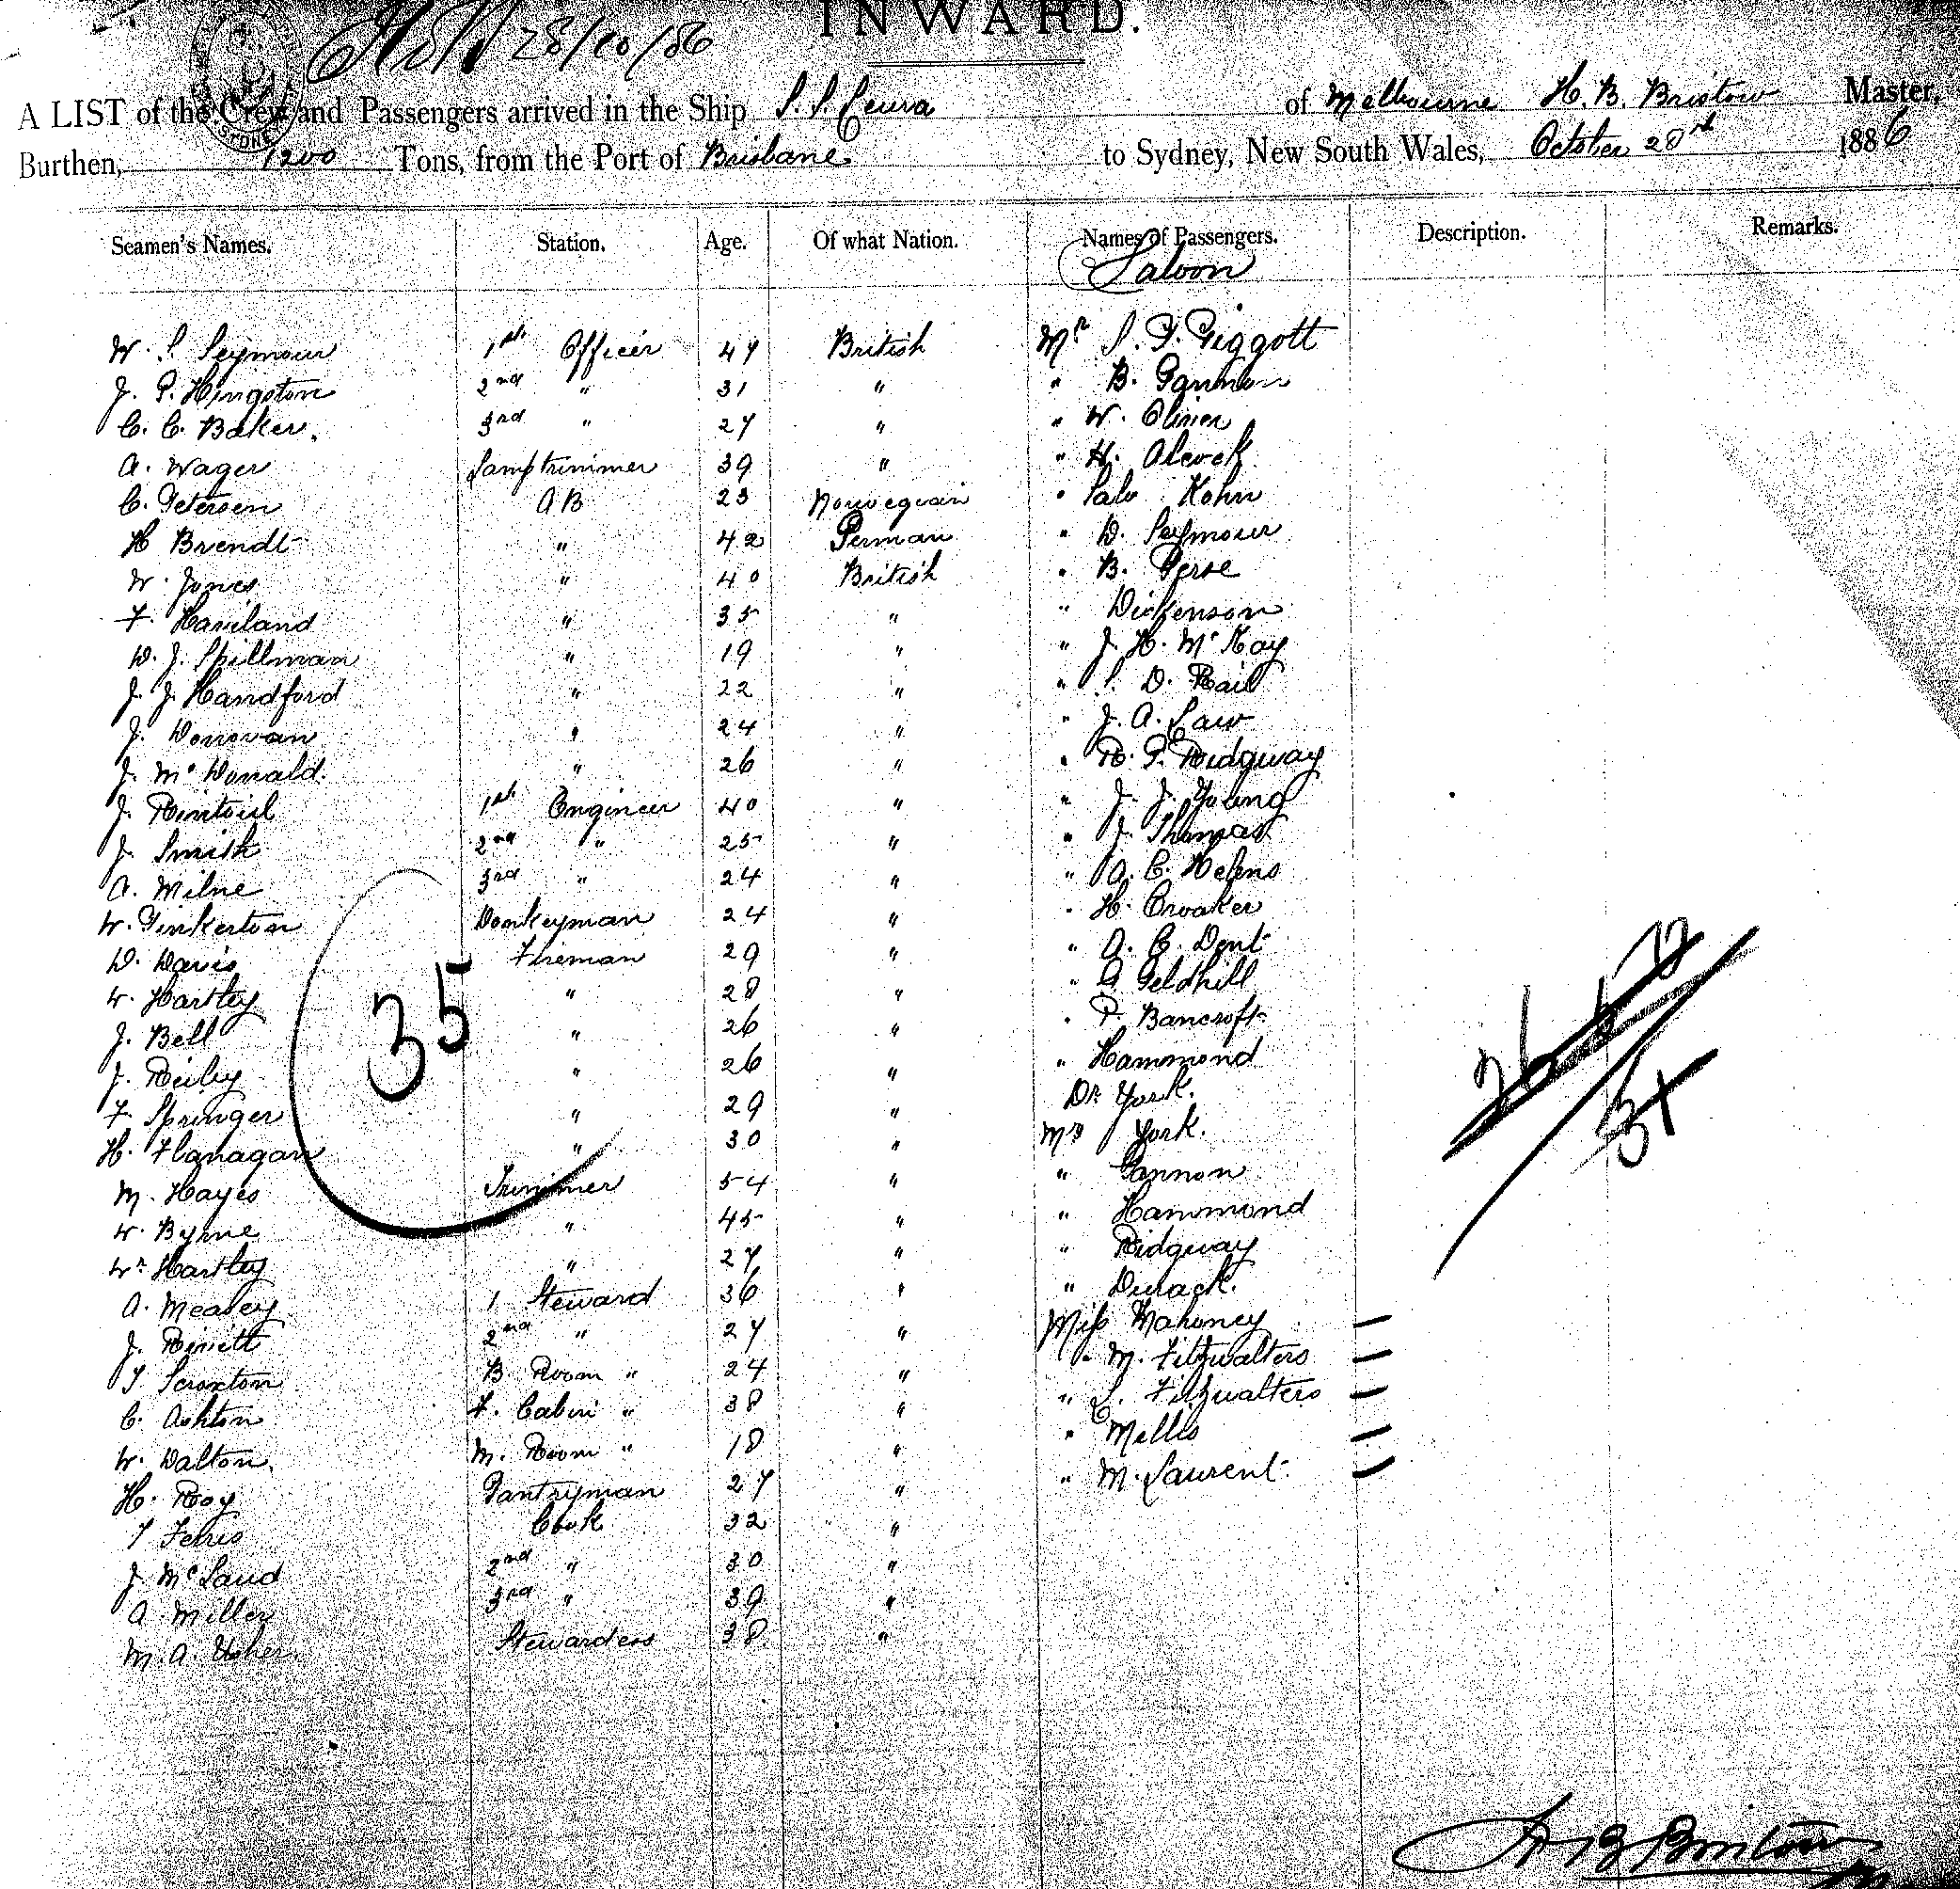 INWARD.
28/10/86
A LIST of the Crew and Passengers arrived in the Ship S. S. Ceura of Melbourne H. B. Bristow Master,
Burthen, 1200 Tons, from the Port of Brisbane to Sydney, New South Wales, October 28rd 1886
Seamen's Names. Station. Age. Of what Nation. Names of Passengers. Description. Remarks.
Saloon
W. S. Seymour 1st Officer 47 British Mr S. F. Piggott
J. P. Hingston 2nd " 31 " " B. Gannon
C. C. Baker. 3rd " 27 " " W. Olivier
A. Wager Lamptrimmer 39 " " H. Alcock
C. Petersen AB 23 Norwegian " Salo Kohn
H Brendt " 42 German " D. Seymour
W. Jones " 40 British " B. Perse
F. Haviland " 35 " " Dickenson
D. J. Spillman " 19 " " J. H. McKay
J. J. Handford " 22 " " S. D. Rail
J. Donovan " 24 " " J. A. Law
J. McDonald. " 26 " " R. P. Ridgway
J. Rintoul 1st Engineer 40 " " J. J. Young
J. Smith 2nd " 25 " " J. Thomas
A. Milne 3rd " 24 " " A. C. Helens
W. Pinkerton Donkeyman 24 " " H. Croaker
D. Davis Fireman 29 " " A. C. Dent
W. Hartley " 28 " " A Geldhill
J. Bell " 26 " " P. Bancroft
J. Reiby " 26 " " Hammond
F. Springer " 29 " Dr York.
H. Flanagan " 30 " Mrs York.
M. Hayes Trimmer 54 " " Gannon
W. Byrne " 45 " " Hammond
Wm Hartley " 27 " " Ridgway
A. Meavey 1 Steward 36 " " Durack.
J. 2nd " 27 " Miss Mahoney
T. Scroxton B Room " 24 " " M. Fitzwalters
C. Ashton F. Cabin " 38 " " L. Fitzwalters
W. Dalton. M. Room " 18 " " Mellis
H. Roy Pantryman 27 " " M. Laurent
T Ferris Cook 32 "
J. McLaud 2nd " 30 "
A. Miller 3rd " 39 "
M. A. Usher. Stewardess 38 "
35
H B Bristow